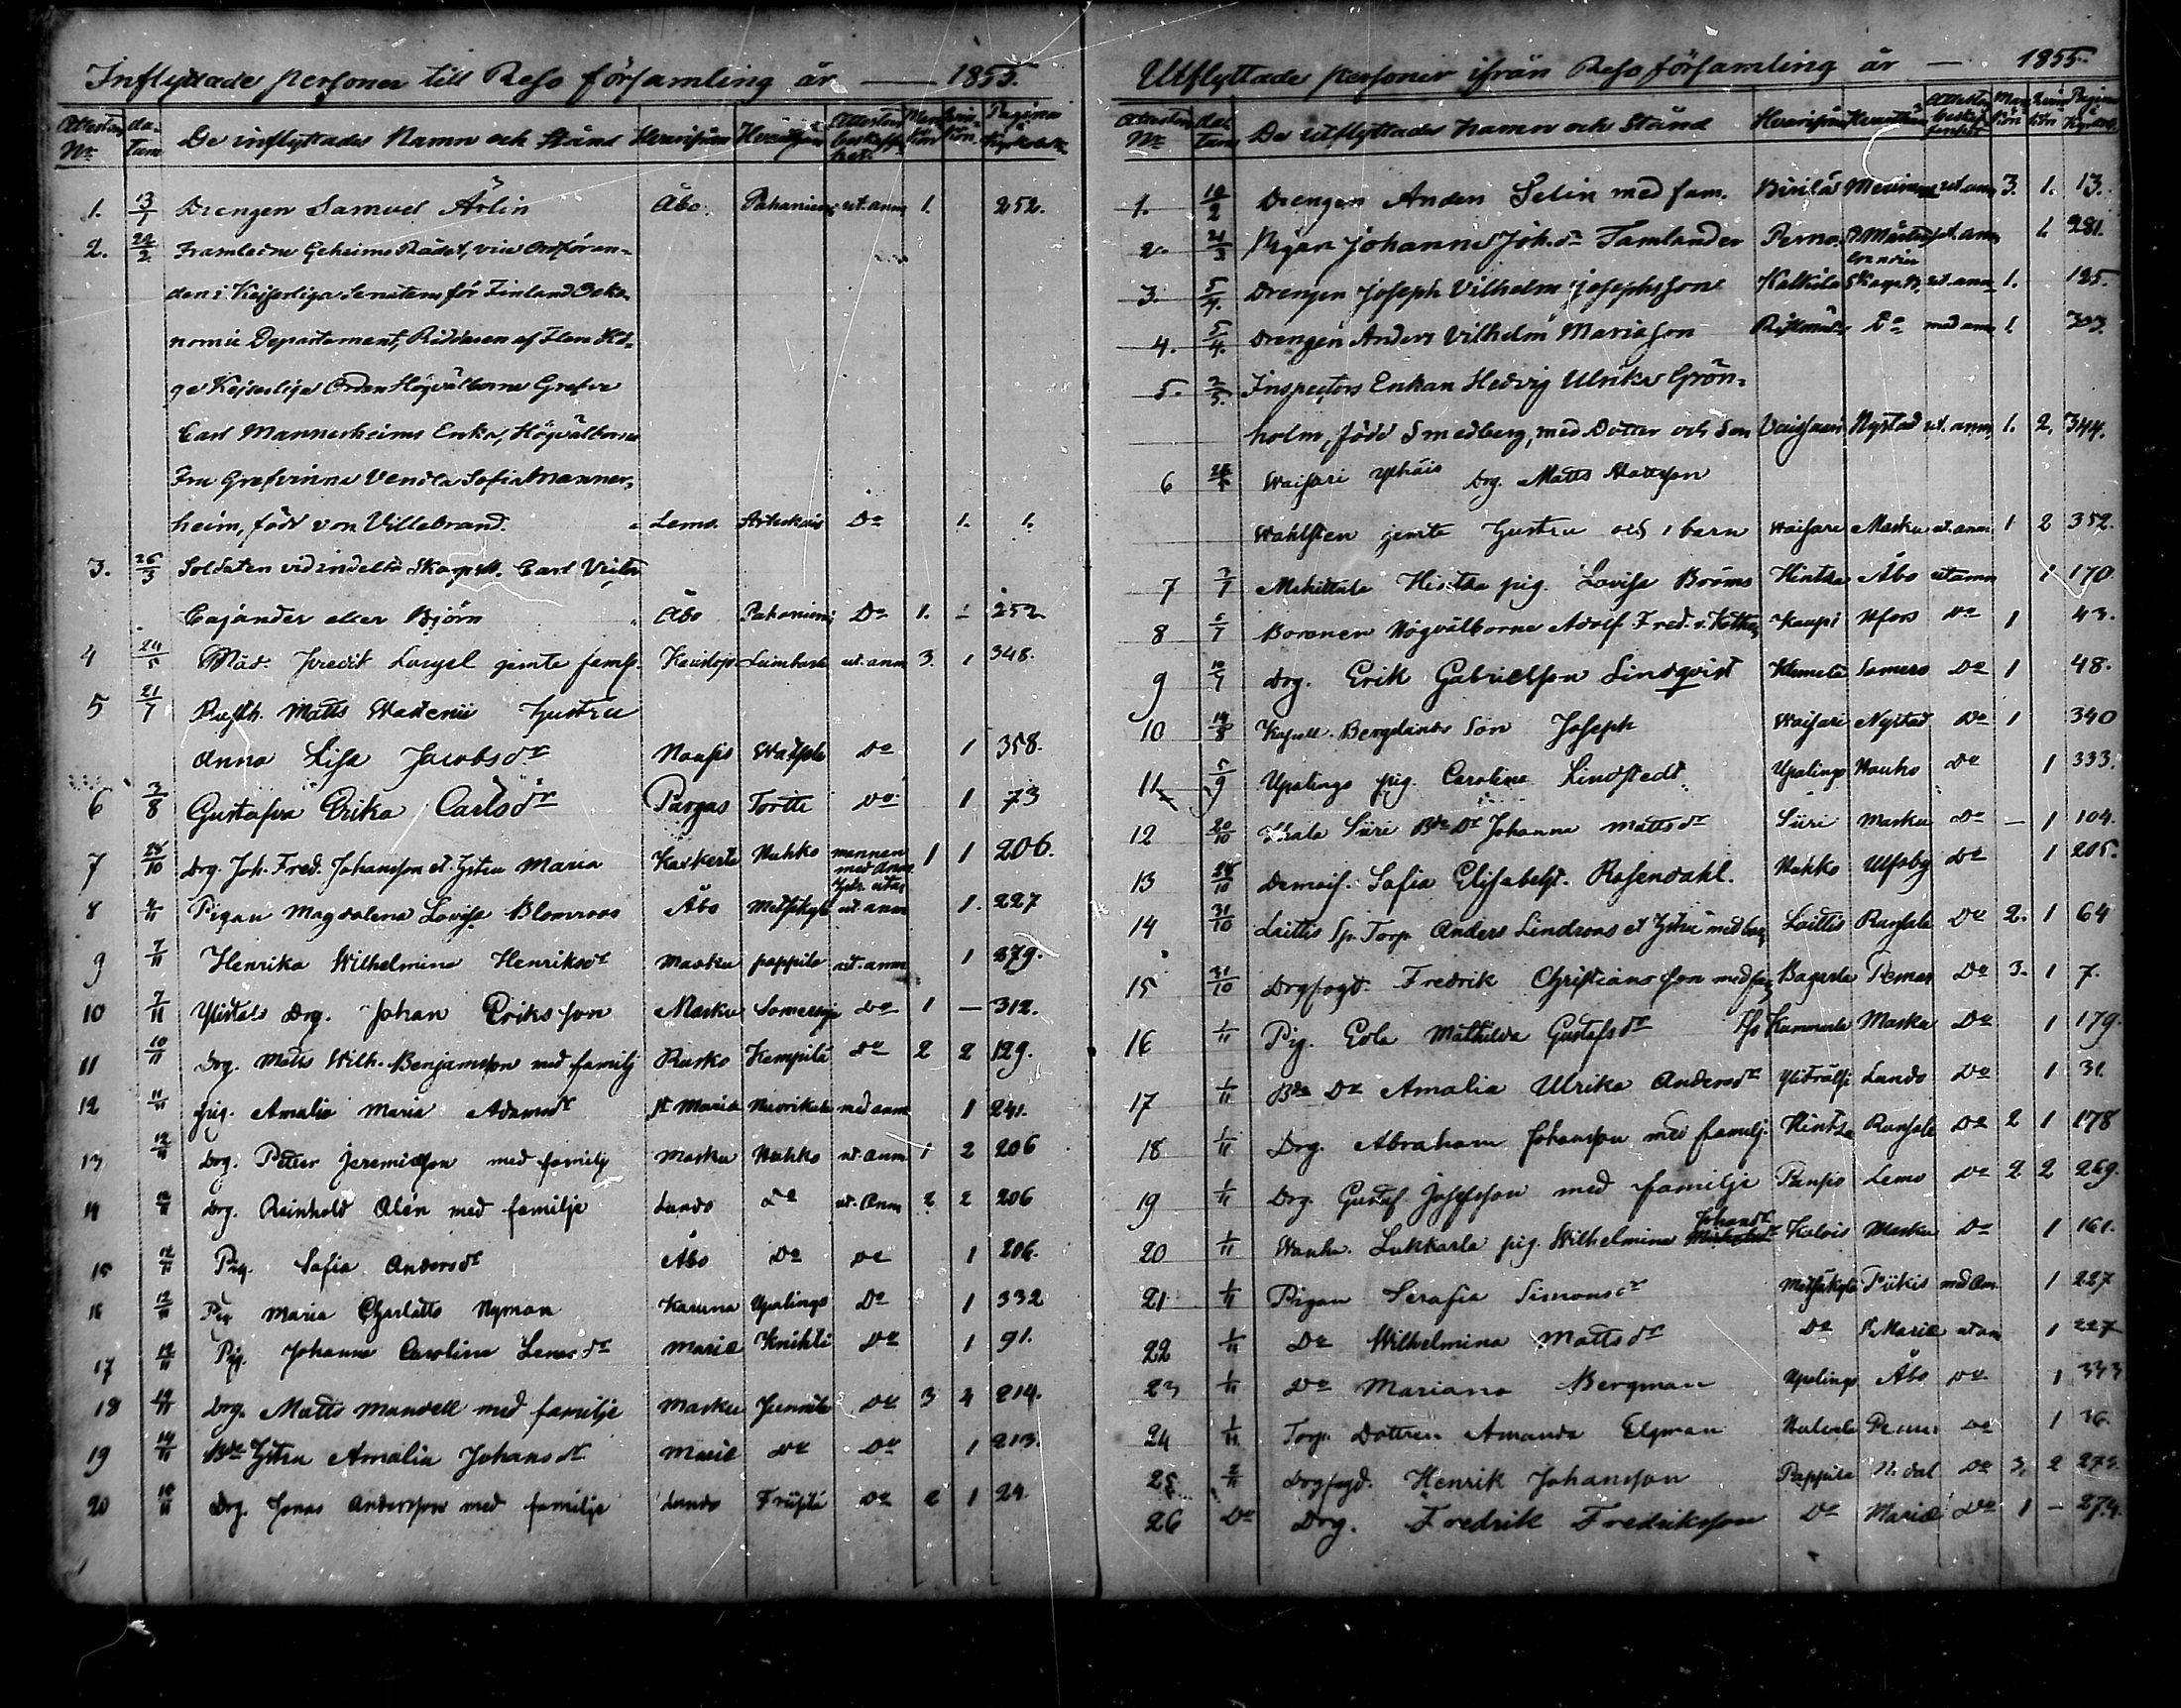 Inflyttade personer till Reso församling år — 1855.
Attestens No datum De inflyttades Namn och Stånd Hvarifrån Attestens beskaffenhet Mankön Qvinkön Pagina i Kyrkobok
1. 13/1 Drengen Samuel Årlin Åbo. Pahaniemi ut. anm 1. 252.
2. 22/2 Framledne Geheime Rådet, vice Ordföran-
den i Kejserliga Senatens för Finland Oeko-
nomie Departement, Riddaren af flere Hö-
ge Kejserliga Orden Högvälborne Grefve
Carl Mannerheims Enka, Högvälborna
Fru Grefvinna Vendla Sofia Manner-
heim, född von Villebrand. Lemo. Do 1. 1.
3. 26/3 Soldaten vid indelta Skarpsk. Carl
Cajander eller Björn Åbo Pahaniemi Do 1. - 252
4 24/5 Fredrik jemte famlj. ut. anm 3. 1 348.
5 21/7 Rusth. Matts Hustru
Anna Lisa Jacobsdr Do 1 358.
6 3/8 Gustafva Erika Carlsdr Pargas Do 1 73
7 28/10 Drg. Joh. Fred. Johansson et. Hstru Maria Nuhko mannen med anm 1 1 206.
8 4/11 Pigan Magdalena Lovisa Blomroos Åbo ut anm 1. 227
9 7/11 Henrika Wilhelmina Henriksdr Masku pappila ut. anm 1 279.
10 7/11 Drg. Johan Eriksson Masku Do 1 — 312.
11 10/11 Drg. Matts Wilh. Benjamsson med familj Rusko Kempilä Do 2 2 129.
12 11/11 pig. Amalia Maria Adamsdr St Mariæ med anm 1 241.
13 12/11 Drg. Petter Jeremiasson med familj Masku Nuhko ut. anm 1 2 206
14 12/11 Drg. Reinhold Alén med familje Lundo Do ut. anm 2 2 206
15 12/11 Pig. Safia Andersdr Åbo Do Do 1 206.
16 12/11 Pig Maria Charlotta Nyman Karuna Upalingo Do 1 332
17 12/11 Pig. Johanna Carolina Mariæ Knihti Do 1 91.
18 14/11 Drg. Matts Mandell med familje Masku Do 3 4 214.
19 14/11 Bde Hstru Amalia Johansdr. Mariæ Do Do 1 213.
20 15/11 Drg. Jonas Andersson med familje Lundo Do 2 1 24.
Utflyttade personer ifrån Reso församling år — 1855.
Attestens No datum De utflyttades namn och Stånd Hvarifrån Hvarthän Attestens beskaffenhet Mankön Qvinkön Pagina i Kyrkob.
1. 12/2 Drengen Anders Selin med fam. ut anm 3. 1. 13.
2. 21/3 Pigan Johanna Joh.dr Tamlander Perno. ut. anm 1. 281.
3. 5/4. Drengen Joseph Vilhelm Josephsson ut. anm 1. 125.
4. 5/4. Drengen Anders Vilhelm Mariasson Do med anm 1. 303.
5. 2/5. Inspectors Enkan Hedvig Ulrika Grön-
holm, född Smedberg, med Dotter och Son Vaisaari Nystad ut. anm 1. 2. 344.
6 Waisari Drg. Matts Mattsson
Wahlsten jemte hustru och 1 barn Waisare Masku ut. anm 1 2 352.
7 7/7 Hintsa pig. Lovisa Broms Hintsa Åbo ut anm 1 170
8 6/7 Baronen Högvälborne Adolf Fred. v. Kothen Kaupi Hfors Do 1 43.
9 10/7 Drg. Erik Gabrielsson Lindqvist Somero Do 1 48.
10 14/8 Kapell. Bergdanos Son Joseph Waisari Nystad Do 1 340
11 5/9 Upalingo pig. Carolina Lindstedt. Upalingo Do 1 333.
12 20/10 Ihala Siiri Bde Dr Johanna Mattsdr Siiri Masku Do — 1 104.
13 28/10 Demois. Sofia Elisabeht. Rosendahl. Nuhko Ulfsby Do 1 205.
14 31/10 Laittis Sp. Torp. Anders Lindroos et Hstru med barn Laittis Do 2. 1 64
15 31/10 Drgfogd. Fredrik Christiansson med fam Pemar Do 3. 1 7.
16 1/11 Pig. Edla Mathilda Gustafsdr Kummila Masku Do 1 179.
17 1/11 Bde Dr Amalia Ulrika Andersdr Lundo Do 1 31.
18 1/11 Drg. Abraham Johansson med familj. Hintsa Do 2 1 178
19 1/11 Drg. Gustaf Josefsson med familje Pansio Lemo Do 2 2 269.
20 1/11 Wanh. Lukkarla pig. Wilhelmina Johansdr Kalois Masku Do 1 161.
21 1/11 Pigan Serafia Simonsdr Metsäkylä Piikis med Am. 1 227
22 1/11 Do Wilhelmina Mattsdr Do St Mariæ ut an 1 227
23 1/11 Do Mariana Bergman Upalingo Åbo Do 1 333
24 1/11 Torp. Dottren Amanda Elgman Do 1 36.
25 2/11 Drgfogd. Henrik Johansson Pappila N. dal Do 3. 2 274.
26 Do Drg. Fredrik Fredriksson Do Mariæ Do 1 — 274.